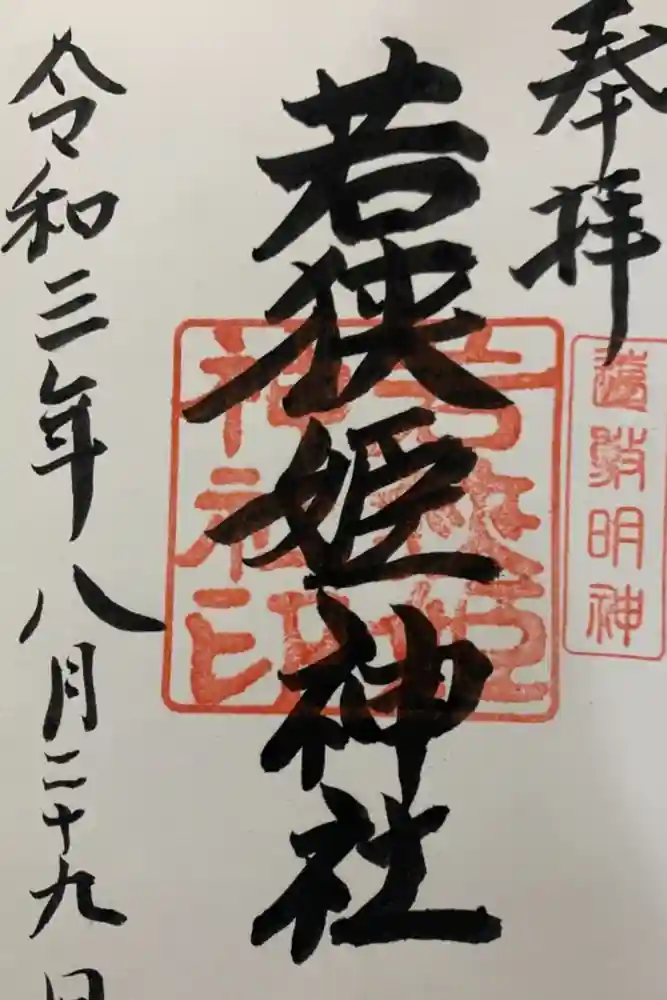 奉拝
遠敷明神
若狭姫神社
若狭姫
神社印
令和三年八月二十九日